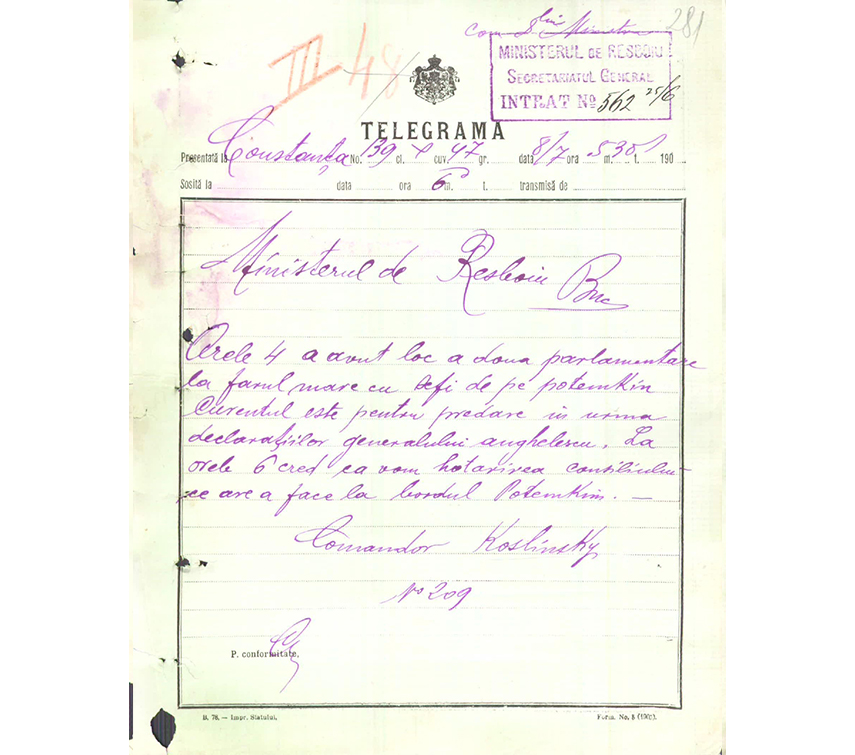 281
III 48
com
MINISTERUL DE RESBOIU
SECRETARIATUL GENERAL
INTRAT No 562 25/6
TELEGRAMA
Prezentată la Constanța No. 139 cl. cuv. 47 gr. data 8/7 ora 530 m. t. 190
Sosită la data ora 6 m. t. transmisă de
Ministerul de Resboiu Buc
Orele 4 a avut loc a doua parlamentare
la farul mare cu sefi de pe potemkin
Curentul este pentru predare in urma
declarațiilor generalului anghelescu. La
orele 6 cred ca vom hotarirea consiliului
ce are a face la bordul Potemkin. —
Comandor Koslinsky
No 209
P. conformitate,
B. 76. — Impr. Statului.
Form. No. 8 (190).